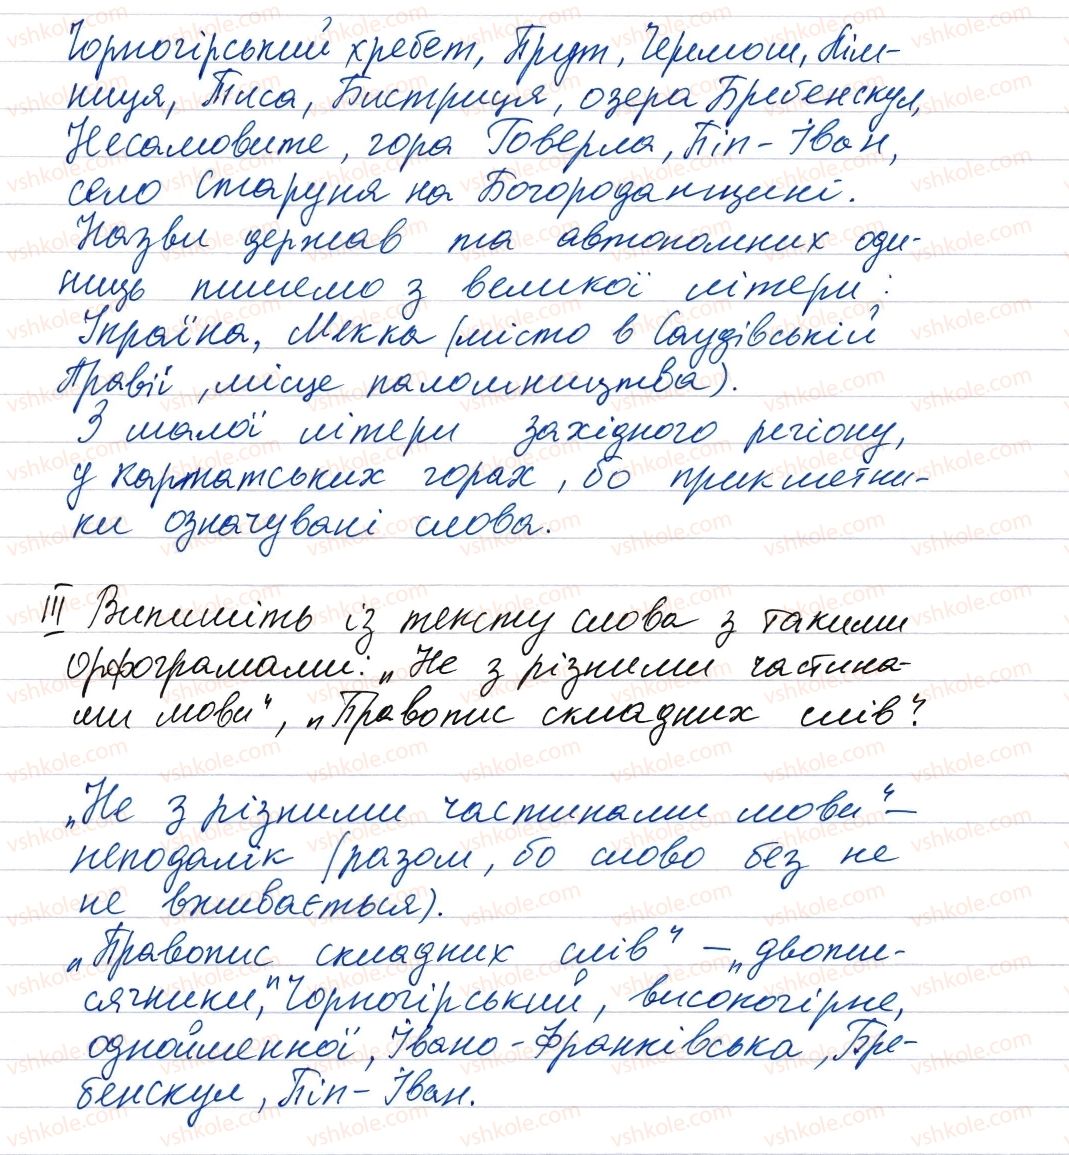 Чорногірський хребет, Прут, Черемош, Лім-
ниця, Тиса, Бистриця, озера Бребенскул,
Несамовите, гора Говерла, Піп-Іван,
село Старуня на Богородчанщині.
Назви держав та автономних оди-
ниць пишемо з великої літери:
Україна, Мекка (місто в Саудівській
Аравії, місце паломництва).
З малої літери західного регіону,
у карпатських горах, бо прикметни-
ки означувані слова.
III Випишіть із тексту слова з такими
орфограмами: „Не з різними частина-
ми мови", „Правопис складних слів"?
„Не з різними частинами мови" –
неподалік (разом, бо слово без не
не вживається).
„Правопис складних слів" – „двоти-
сячники," Чорногірський, високогірне,
однойменної, Івано-Франківська, Бре-
бенскул, Піп-Іван.